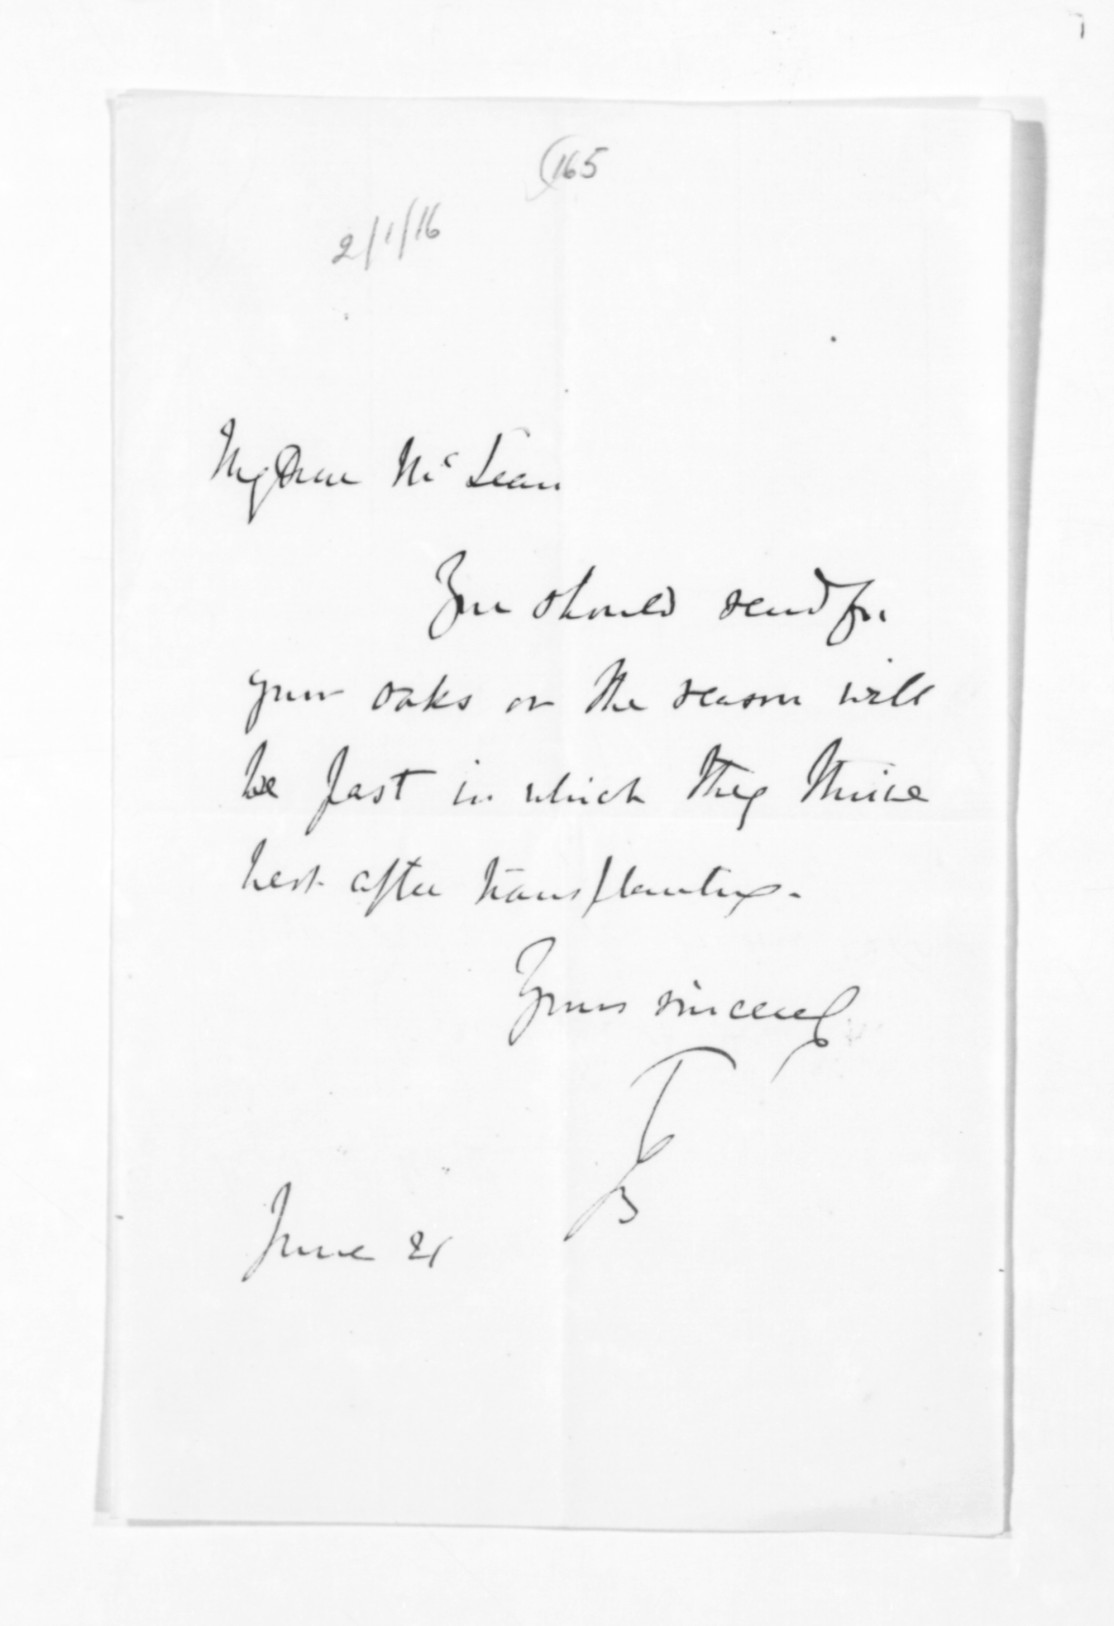 165
2/1/16
My Dear McLean
You should send for
your oaks or the season will
be past in which they thrive
best after transplanting.
Yours sincerely
June 21